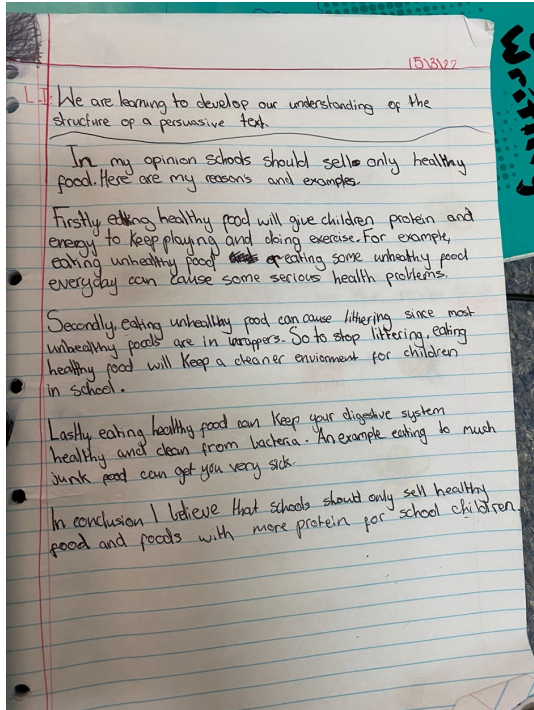 15/3/22
L.I: We are learning to develop our understanding of the
structure of a persuasive text.
In my opinion schools should sell only healthy
food. Here are my reason's and examples.
Firstly eating healthy food will give children protein and
energy to keep playing and doing exercise. For example,
eating unhealthy food eating some unhealthy food
everyday can cause some serious health problems.
Secondly, eating unhealthy food can cause littering since most
unhealthy foods are in wrappers. So to stop littering, eating
healthy food will keep a cleaner enviornment for children
in school.
Lastly eating healthy food can keep your digestive system
healthy and clean from bacteria. An example eating to much
junk food can get you very sick.
In conclusion I believe that schools should only sell healthy
food and foods with more protein for school children.